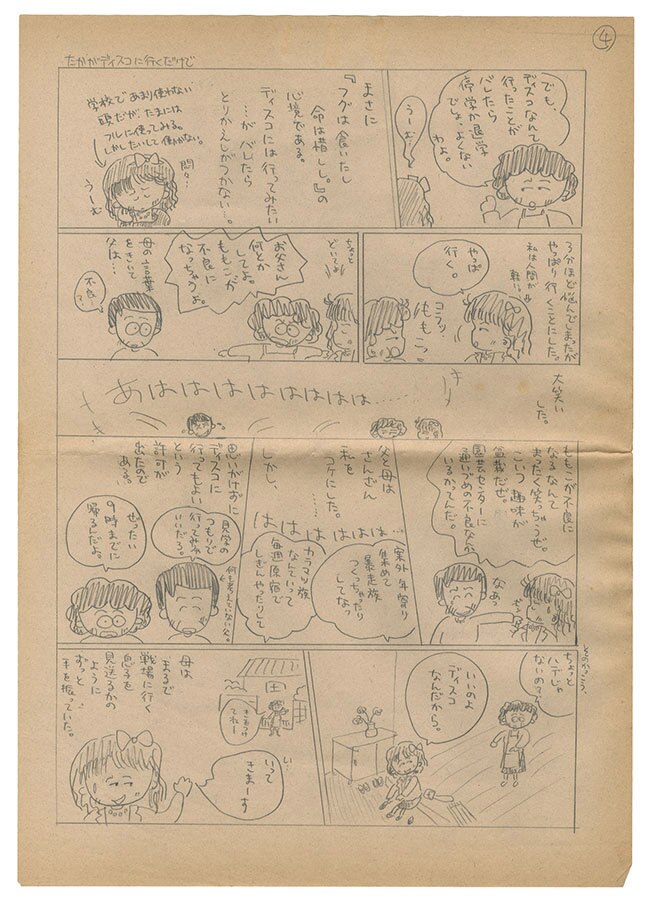 ④
たかがディスコに行くだけで
でも、
ディスコなんて
行ったことが
バレたら
停学か退学
でしょ。よくない
わよ。
うーむ…
まさに
『フグは食いたし
命は惜しし。』の
心境である。
ディスコには行ってみたい
…が バレたら
とりかえしがつかない…。
学校であまり使わない
頭だが、たまには
フルに使ってみる。
しかしたいして働かない。
悶々…
うーむ
3分ほど悩んでしまったが
やっぱり行くことにした。
私は人間が
軽い。
やっぱ
行く。
コラッ
ももこっ
ちょっと
どいてよ
お父さん
何とか
してよ。
ももこが
不良に
なっちゃうよ。
母の言葉
をきいて
父は…
不良…
って…
大笑い
した。
あははははははははは……
ももこが不良に
なるなんて
まったく笑っちゃうぜ。
こいつ 趣味が
盆栽だぜ。
園芸センターに
通いづめの不良なんか
いるかってんだ。
なあっ
案外 年寄り
集めて
暴走族
つくっちゃったり
してなっ
カラマリ族
なんていって
毎週原宿で
しぎんやったりして
ははははははは…
父と母は
さんざん
私を
コケにした。
……
しかし、
思いがけずに
ディスコに
行ってもよい
という
許可が
出たので
ある。
見学の
つもりで
行ってみりゃ
いいだろ。
何も考えていない父。
ぜったい
9時までに
帰るんだよ。
ちょっと
ハデじゃ
ないの?
いいのよ
ディスコ
なんだから。
い…
いって
きまーす
母は
まるで
戦場に行く
息子を
見送るかの
ように
ずっと
手を振っていた。